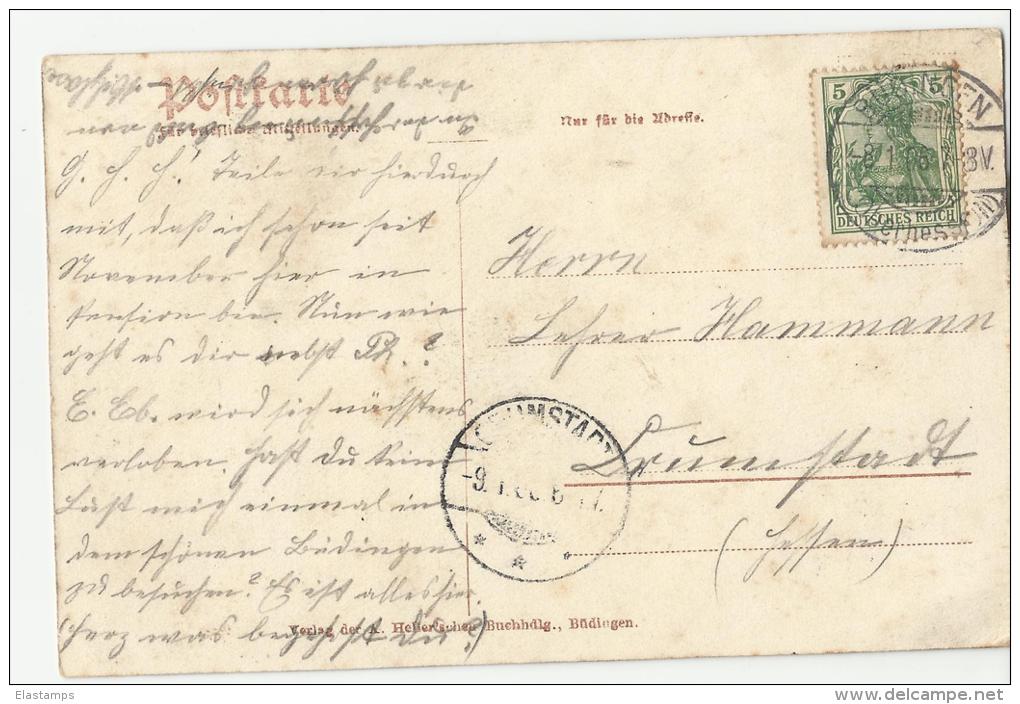 Postkarte
Für briefliche Mitteilungen.
Nur für die Adresse.
5 5
DEUTSCHES REICH
BÜDINGEN
-8.1.06. 7-8V.
G. h. h! Teile dir hierdurch
mit, daß ich schon seit
November hier in
Pension bin. Nun wie
geht es dir nebst Ph.?
E. Eb. wird sich nächstens
verloben. Hast Du kein
Lust mich einmal in
dem schönen Büdingen
zu besuchen? Es ist alles hier
(Herz was begehrst du?)
Herrn
Lehrer Hammann
Crumstadt
(Hessen)
CRUMSTADT
-9.1.
Verlag der A. Heller'schen Buchhdlg., Büdingen.
Elastamps
delcampe.net